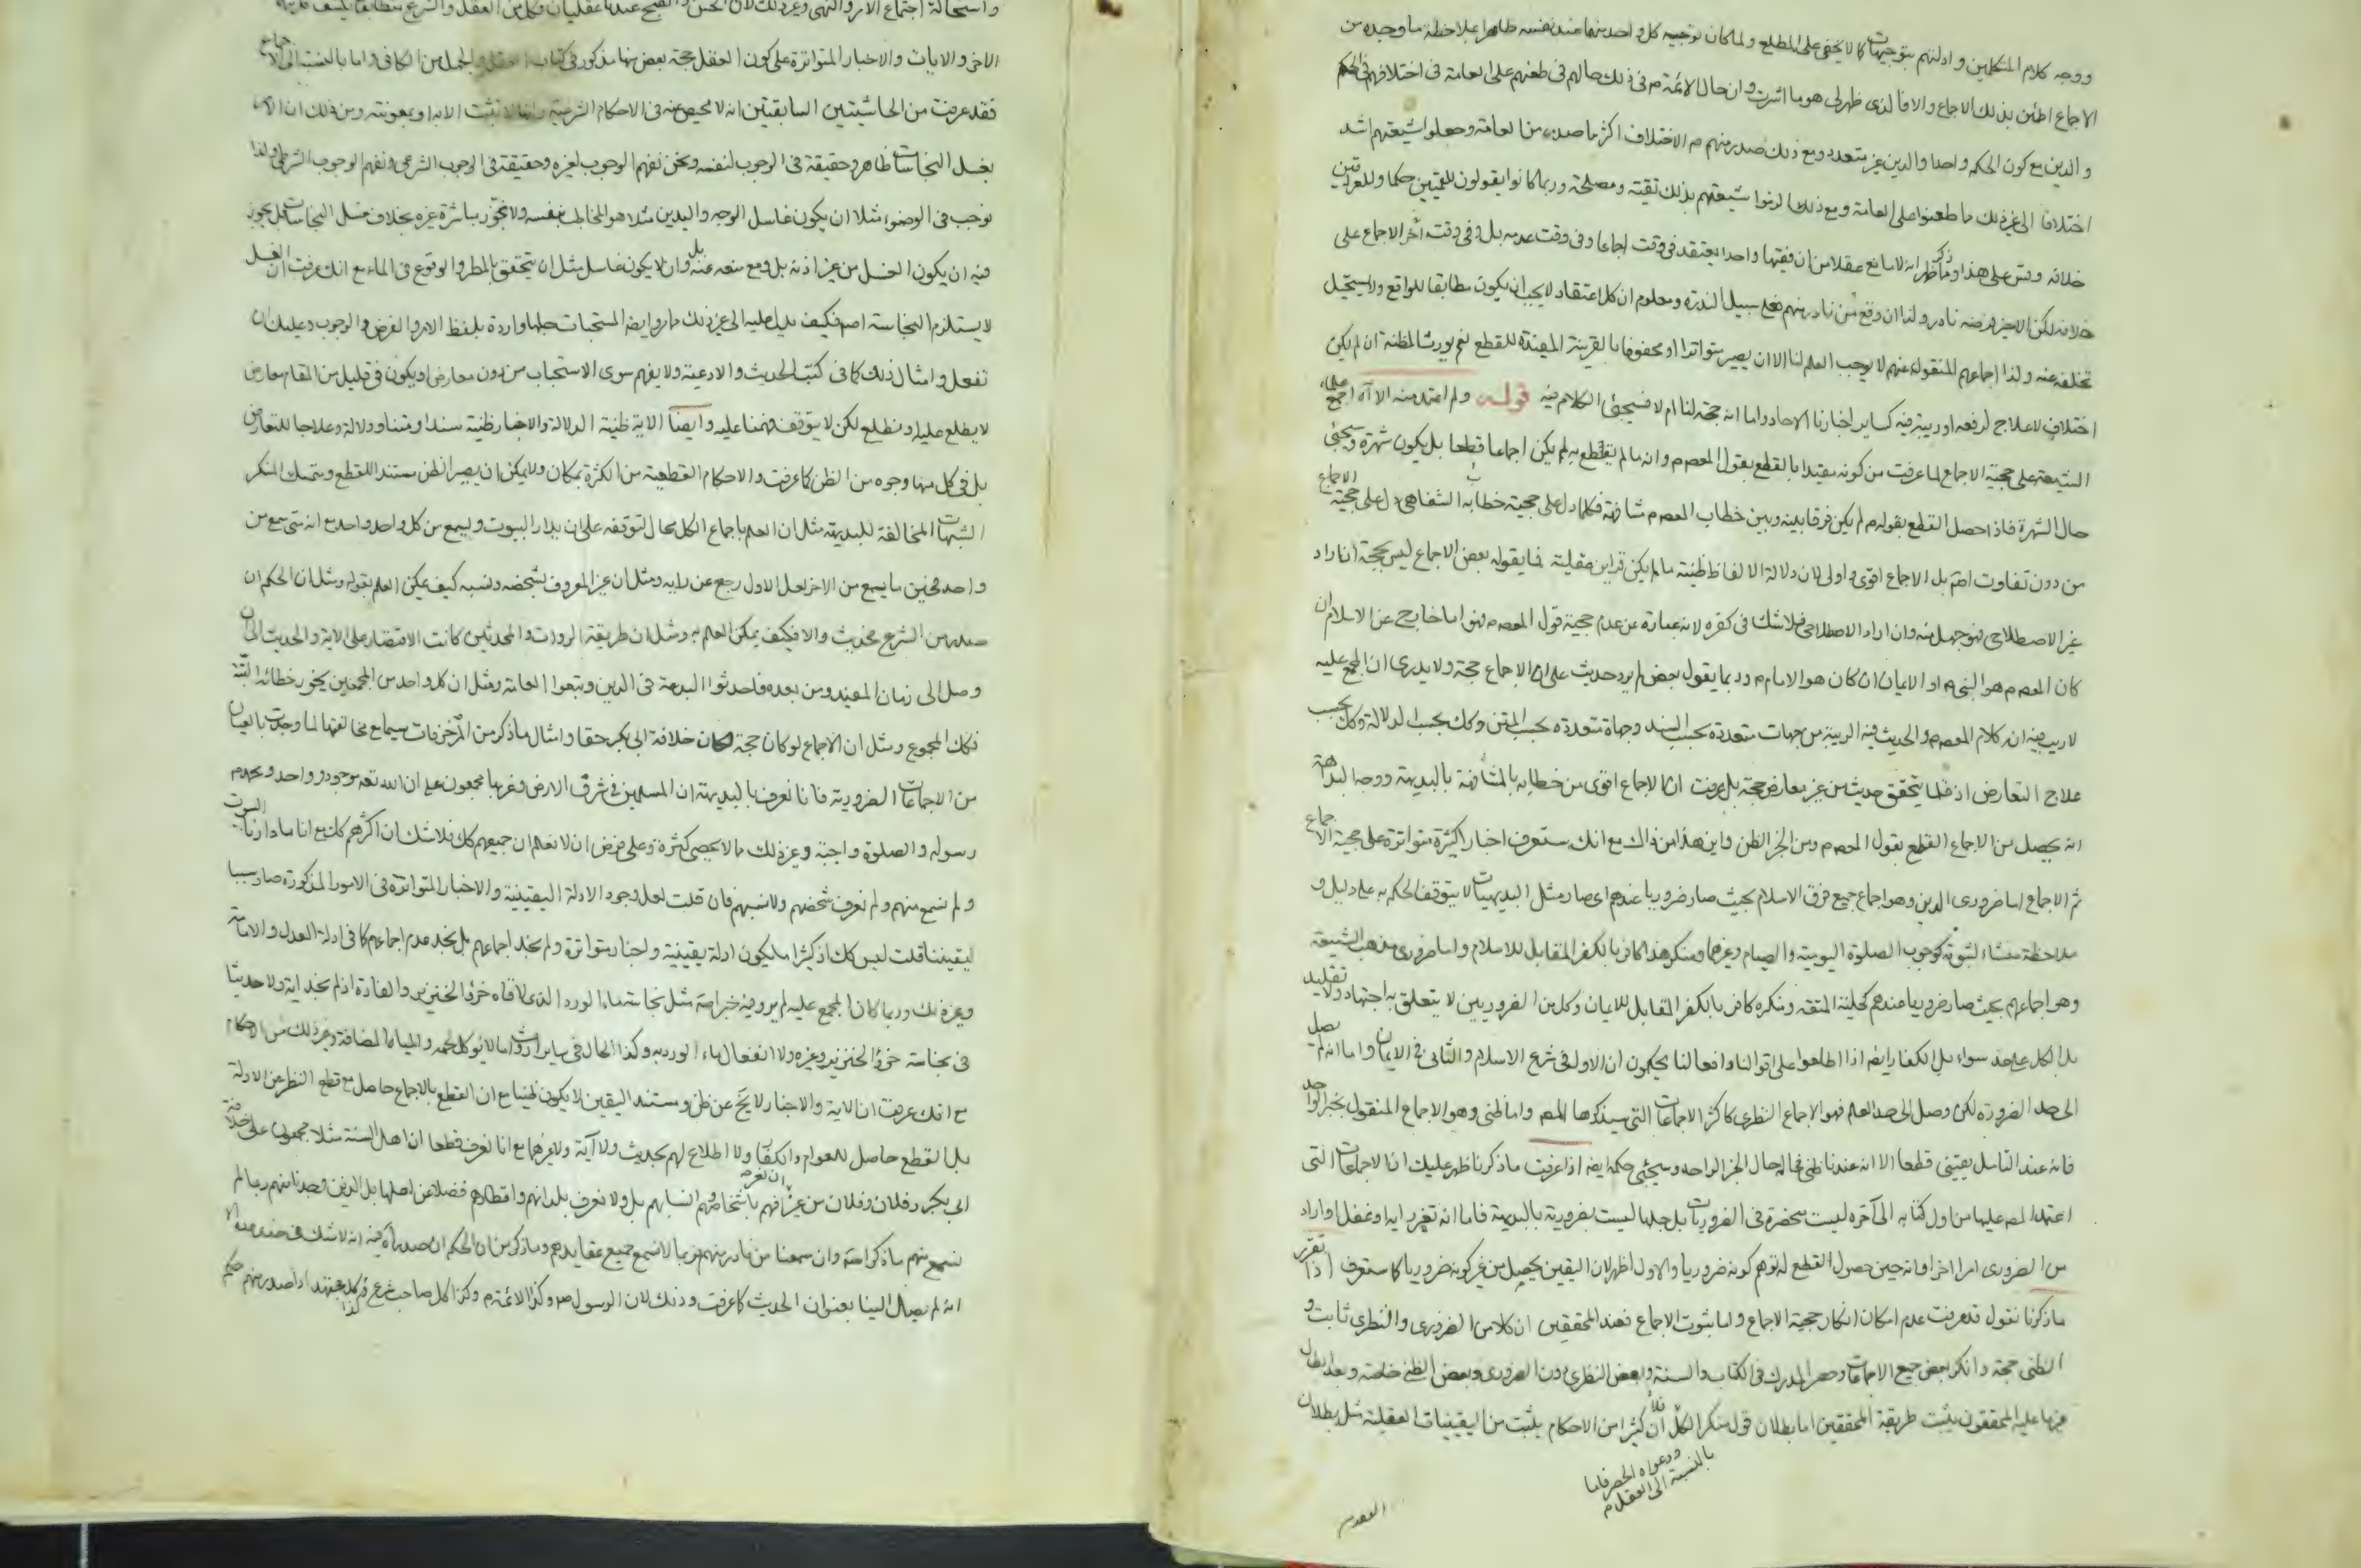 ووجه كلام المتكلمين وادلتهم بتوجيهات كما لا يخفى على المطلع ولما كان توجيه كل واحد منهما عند نفسه ظاهرا بملاحظة ما وجده من
الاجماع اطمئن بذلك الاجماع والا فالذى ظهر لى هو ما اشرت وان حال الائمة م فى ذلك حالهم فى طعنهم على العامة فى اختلافهم فى الحكم
والدين مع كون الحكم واحدا والدين غير متعدد ومع ذلك صدر منهم م الاختلاف اكثر ما صدر من العامة وجعلوا شيعتهم اشد
اختلافا الى غير ذلك ما طعنوا على العامة ومع ذلك الزموا شيعتهم بذلك تقية ومصلحة وربما كانوا يقولون للقميين حكما وللعراقيين
خلافه وقس على هذا وما ذكر ظهر انه لا مانع عقلا من ان فقيها واحدا يعتقد فى وقت اجماعا وفى وقت عدمه بل وفى وقت آخر الاجماع على
خلافه لكن الاخير فرضه نادر ولذا ان وقع من نادر منهم فعلى سبيل الندرة ومعلوم ان كل اعتقاد لا يجب ان يكون مطابقا للواقع ولا يستحيل
تخلفه عنه ولذا اجماعهم المنقولة عنهم لا يوجب العلم لنا الا ان يصير متواترا او محفوفا بالقرينة المفيدة للقطع نعم يورث المظنة ان لم يكن
اختلاف لا علاج لرفعه او ريبة فيه كساير اخبارنا الاحاد واما انه حجة لنا ام لا فسيجئ الكلام فيه قوله ولم اعتمد منه الا آه اجمع علماء
الشيعة على حجية الاجماع لما عرفت من كونه مفيدا بالقطع بقول المعصوم وانه ما لم يقطع به لم يكن اجماعا قطعا بل يكون شهرة وسيجئ
حال الشهرة فاذا حصل القطع بقوله م لم يكن فرقا بينه وبين خطاب المعصوم مشافهة فكلما دل على حجية خطابه الشفاهى دل على حجية الاجماع
من دون تفاوت اصلا بل الاجماع اقوى واولى لان دلالة الالفاظ ظنية ما لم يكن قراين عقلية فما يقوله بعض الاجماع ليس بحجة ان اراد
غير الاصطلاحى فهو جهل منه وان اراد الاصطلاحى فلا شك فى كفره لانه عبارة عن عدم حجية قول المعصوم فهو اما خارج عن الاسلام ان
كان المعصوم هو النبى ص او الايمان ان كان هو الامام م وربما يقول بعض لم يرد حديث على ان الاجماع حجة ولا يدرى ان المجمع عليه
لا ريب فيه انه كلام المعصوم والحديث فيه الريبة من جهات متعددة بحسب السند وجهات متعددة بحسب المتن وكك بحسب الدلالة وكك بحسب
علاج التعارض اذ قلما يتحقق حديث من غير معارض حجة بل عرفت ان الاجماع اقوى من خطابه بالمشافهة بالبديهة ووجه البداهة
انه يحصل من الاجماع القطع بقول المعصوم ومن الخبر الظن واين هذا من ذاك مع انك ستعرف اخبارا كثيرة متواترة على حجية الاجماع
ثم الاجماع اما ضرورى الدين وهو اجماع جميع فرق الاسلام بحيث صار ضروريا عندهم اى صار مثل البديهيات لا يتوقف الحكم به على دليل و
ملاحظة منشاء لثبوته كوجوب الصلوة اليومية والصيام وغيرهما ومنكر هذا كافر بالكفر المقابل للاسلام واما ضرورى مذهب الشيعة
وهو اجماعهم بحيث صار ضروريا عندهم كحلية المتعة ومنكره كافر بالكفر المقابل للايمان وكل من الضروريين لا يتعلق به اجتهاد ولا تقليد
بل الكل على حد سواء بل الكفار ايضا اذا اطلعوا على اقوالنا وافعالنا يحكمون ان الاول فى شرع الاسلام والثانى فى الايمان واما انه لم يصل
الى حد الضرورة لكن وصل الى حد العلم فهو الاجماع النظرى كاكثر الاجماعات التى سيذكرها المصم واما ظنى وهو الاجماع المنقول بخبر الواحد
فانه عند الناقل يقينى قطعا الا انه عندنا ظنى فحاله حال الخبر الواحد وسيجئ حكمه ايضا اذا عرفت ما ذكرنا ظهر عليك ان الاجماعات التى
اعتمد المصم عليها من اول كتابه الى آخره ليست منحصرة فى الضروريات بل جلها ليست بضرورية بالبديهة فاما انه تغير رايه او غفل او اراد
من الضرورى امرا اخر او انه حين حصول القطع له توهم كونه ضروريا والاول اظهر لان اليقين يحصل من غير كونه ضروريا كما ستعرف اذا تقرر
ما ذكرنا نقول قد عرفت عدم امكان انكار حجية الاجماع واما ثبوت الاجماع فعند المحققين ان كلا من الضرورى والنظرى ثابت و
الظنى حجة وانكر بعض جميع الاجماعات وحصر المدرك فى الكتاب والسنة وبعض النظرى دون الضرورى وبعض الظنى خاصة وبعد ابطال
غير ما عليه المحققون يثبت طريقة المحققين اما بطلان قول منكر الكل فلأن كثيرا من الاحكام يثبت من اليقينيات العقلية مثل بطلان
ودعواه الحصر فاما
بالنسبة الى العقل م
واستحالة اجتماع الامر والنهى وغير ذلك لان الحسن والقبح عندنا عقليان وكل من العقل والشرع متطابقا يكشف
الاخر والايات والاخبار المتواترة على كون العقل حجة بعض منها مذكور فى كتاب العقل والجهل من الكافى واما بالنسبة الى الاجماع
فقد عرفت من الحاشيتين السابقتين انه لا محيص عنه فى الاحكام الشرعية وانها لا تثبت الا به او بمعونته ومن ذلك ان الامر
بغسل النجاسات ظاهر وحقيقة فى الوجوب لنفسه ونحن نفهم الوجوب لغيره وحقيقة فى الوجوب الشرعى ونفهم الوجوب الشرطى ولذا
نوجب فى الوضوء مثلا ان يكون غاسل الوجه واليدين مثلا هو المخاطب بنفسه ولا نجوز مباشرة غيره بخلاف غسل النجاسات بل يجوز
فيه ان يكون الغسل من غير اذنه بل ومع منعه عنه بل وان لا يكون غاسل مثل ان يتحقق بالمطر والوقوع فى الماء مع انك عرفت ان الغسل
لا يستلزم النجاسة اصلا فكيف يدل عليه الى غير ذلك مما مر وايضا المستحبات جلها واردة بلفظ الامر والفرض والوجوب وعليك ان
تفعل وامثال ذلك كما فى كتب الحديث والادعية ولا يفهم سوى الاستحباب من دون معارض او يكون فى قليل من المقام معارض
لا يطلع عليه او نطلع لكن لا يتوقف فهمنا عليه وايضا الاية ظنية الدلالة والاخبار ظنية سندا ومتنا ودلالة وعلاجا للتعارض
بل فى كل منها وجوه من الظن كما عرفت والاحكام القطعية من الكثرة بمكان ولا يمكن ان يصير الظن مستندا للقطع ويتمسك المنكر
الشبهات المخالفة للبديهة مثل ان العلم باجماع الكل محال لتوقفه على ان يدار البيوت ويسمع من كل واحد واحد مع انه متى سمع من
واحد فحين ما يسمع من الاخر لعل الاول رجع عن رايه ومثل ان غير المعروف بشخصه ونسبه كيف يمكن العلم بقوله ومثل ان الحكم ان
صدر من الشرع فحديث والا فكيف يمكن العلم به ومثل ان طريقة الروات والمحدثين كانت الاقتصار على الاية والحديث الى ان
وصل الى زمان المفيد ومن بعده فاحدثوا البدعة فى الدين وتبعوا العامة ومثل ان كل واحد من المجمعين يجوز خطائه البتة
فكك المجموع ومثل ان الاجماع لو كان حجة لكان خلافة ابى بكر حقا وامثال ما ذكر من المزخرفات سيما مع مخالفتها لما وجدت بالعيان
من الاجماعات الضرورية فانا نعرف بالبديهة ان المسلمين فى شرق الارض وغربها مجمعون على ان الله تعه موجود وواحد ومحمد م
رسوله والصلوة واجبة وغير ذلك مما لا يحصى كثرة وعلى فرض ان لا نعلم ان جميعهم كك فلا شك ان اكثرهم كك مع انا ما دارنا البيوت
ولم نسمع منهم ولم نعرف شخصهم ولا نسبهم فان قلت لعل وجود الادلة اليقينية والاخبار المتواترة فى الامور المذكورة صار سببا
ليقيننا قلت ليس كك اذ كثيرا ما يكون ادلة يقينية واخبار متواترة ولم نجد اجماعهم بل نجد عدم اجماعهم كما فى ادلة العدل والامامة
وغير ذلك وربما كان المجمع عليه لم يرد فيه خبر اصلا مثل نجاسة ماء الورد الذى لاقاه خرؤ الخنزير والفارة اذ لم نجد اية ولا حديثا
فى نجاسة خرؤ الخنزير وغيره ولا انفعال ماء الورد به وكذا الحال فى ساير ارواث ما لا يوكل لحمه والمياه المضافة وغير ذلك من الاحكام
مع انك عرفت ان الاية والاخبار لا يخ عن ظن ومستند اليقين لا يكون ظنيا مع ان القطع بالاجماع حاصل مع قطع النظر عن الادلة
بل القطع حاصل للعوام والكفار ولا اطلاع لهم بحديث ولا آية ولا غيرهما مع انا نعرف قطعا ان اهل السنة مثلا مجمعون على خلافة
ابى بكر وفلان وفلان من غير ان نعرفهم باشخاصهم وانسابهم بل ولا نعرف بلدانهم واقطارهم فضلا عن اهلها بل الذين وجدنا منهم ربما لم
نسمع منهم ما ذكر اصلا وان سمعنا من نادر منهم فربما لا نسمع جميع عقايدهم وما ذكر من ان الحكم ان صدر آه فيه انه لا شك فى صدوره الا
انه لم يصل الينا بعنوان الحديث كما عرفت وذلك لان الرسول ص وكذا الائمة م وكذا كل صاحب شرع وكذا كل مجتهد اذا صدر منهم حكم